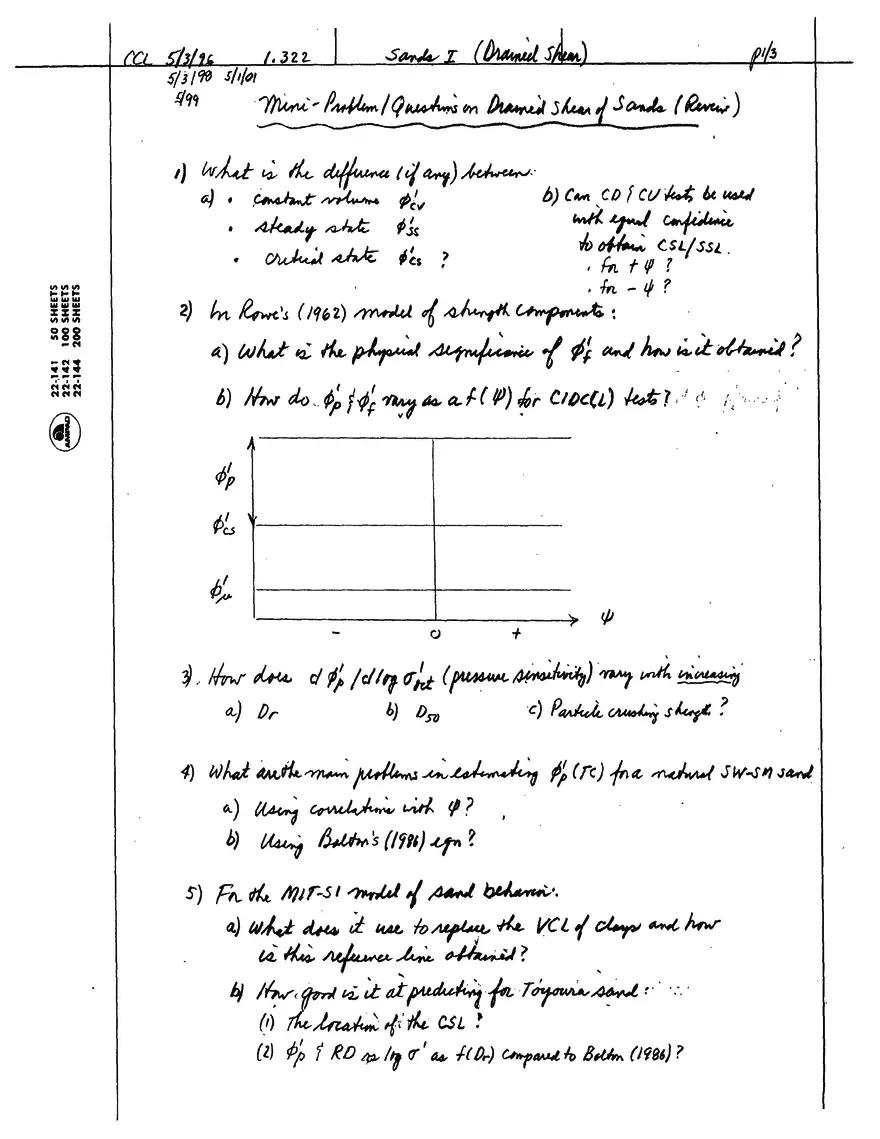 CCL 5/3/96 1.322 Sands I (Drained Shear) p1/3
5/3/98 5/1/01
5/99
Mini-Problem/Questions on Drained Shear of Sands (Review)
1) What is the difference (if any) between:
a) • constant volume ϕ'cv
• steady state ϕ'ss
• critical state ϕ'cs ?
b) Can CD & CU tests be used
with equal confidence
to obtain CSL/SSL.
• for + ψ ?
• for - ψ ?
2) In Rowe's (1962) model of strength components:
a) What is the physical significance of ϕ'f and how is it obtained?
b) How do ϕ'p & ϕ'f vary as a f(ψ) for CIDC(L) tests?
ϕ'p
ϕ'cs
ϕ'μ
ψ
- 0 +
3). How does dϕ'p/dlog σ'oct (pressure sensitivity) vary with increasing
a) Dr b) D50 c) Particle crushing strength?
4) What are the main problems in estimating ϕ'p (TC) for a natural SW-SM sand
a) Using correlations with ψ?
b) Using Bolton's (1986) eqn?
5) For the MIT-S1 model of sand behavior:
a) What does it use to replace the VCL of clays and how
is this reference line obtained?
b) How good is it at predicting for Toyoura sand:
(1) The location of the CSL?
(2) ϕ'p & RD vs log σ' as f(Dr) compared to Bolton (1986)?
22-141 50 SHEETS
22-142 100 SHEETS
22-144 200 SHEETS
AMPAD